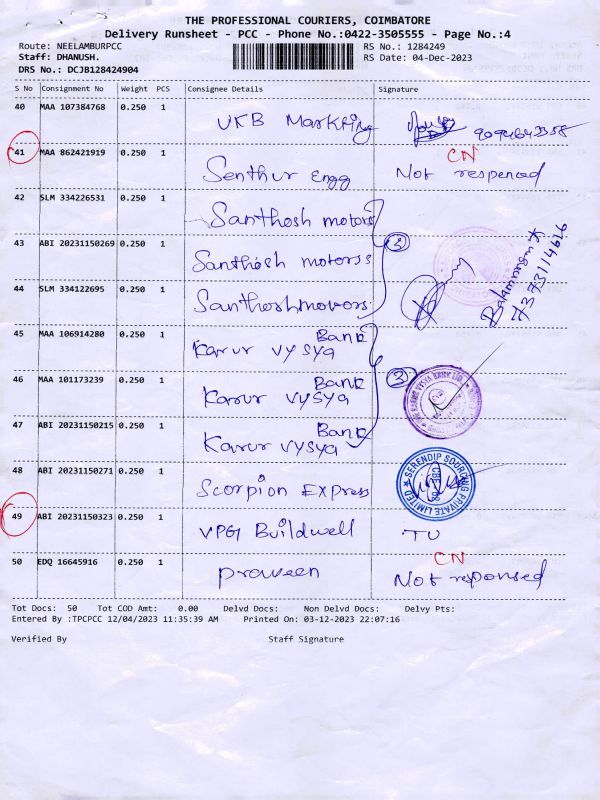 THE PROFESSIONAL COURIERS, COIMBATORE
Delivery Runsheet - PCC - Phone No.:0422-3505555 - Page No.:4
Route: NEELAMBURPCC RS No.: 1284249
Staff: DHANUSH. RS Date: 04-Dec-2023
DRS No.: DCJB128424904
S No Consignment No Weight PCS Consignee Details Signature
40 MAA 107384768 0.250 1 VKB Markting
41 MAA 862421919 0.250 1 Senthur Engg CN Not respenced
42 SLM 334226531 0.250 1 Santhosh motors
43 ABI 20231150269 0.250 1 Santhosh motorss 3
44 SLM 334122695 0.250 1 Santhoshmotors 7373114616
45 MAA 106914280 0.250 1 Karur VYSYA Bank
46 MAA 101173239 0.250 1 Karur VYSYA Bank 3
47 ABI 20231150215 0.250 1 Karur VYSYA Bank
48 ABI 20231150271 0.250 1 Scorpion Express SERENDIP SOURCING PRIVATE LIMITED
49 ABI 20231150323 0.250 1 VPG Buildwell TU
50 EDQ 16645916 0.250 1 Praveen CN Not reponsed
Tot Docs: 50 Tot COD Amt: 0.00 Delvd Docs: Non Delvd Docs: Delvy Pts:
Entered By :TPCPCC 12/04/2023 11:35:39 AM Printed On: 03-12-2023 22:07:16
Verified By Staff Signature